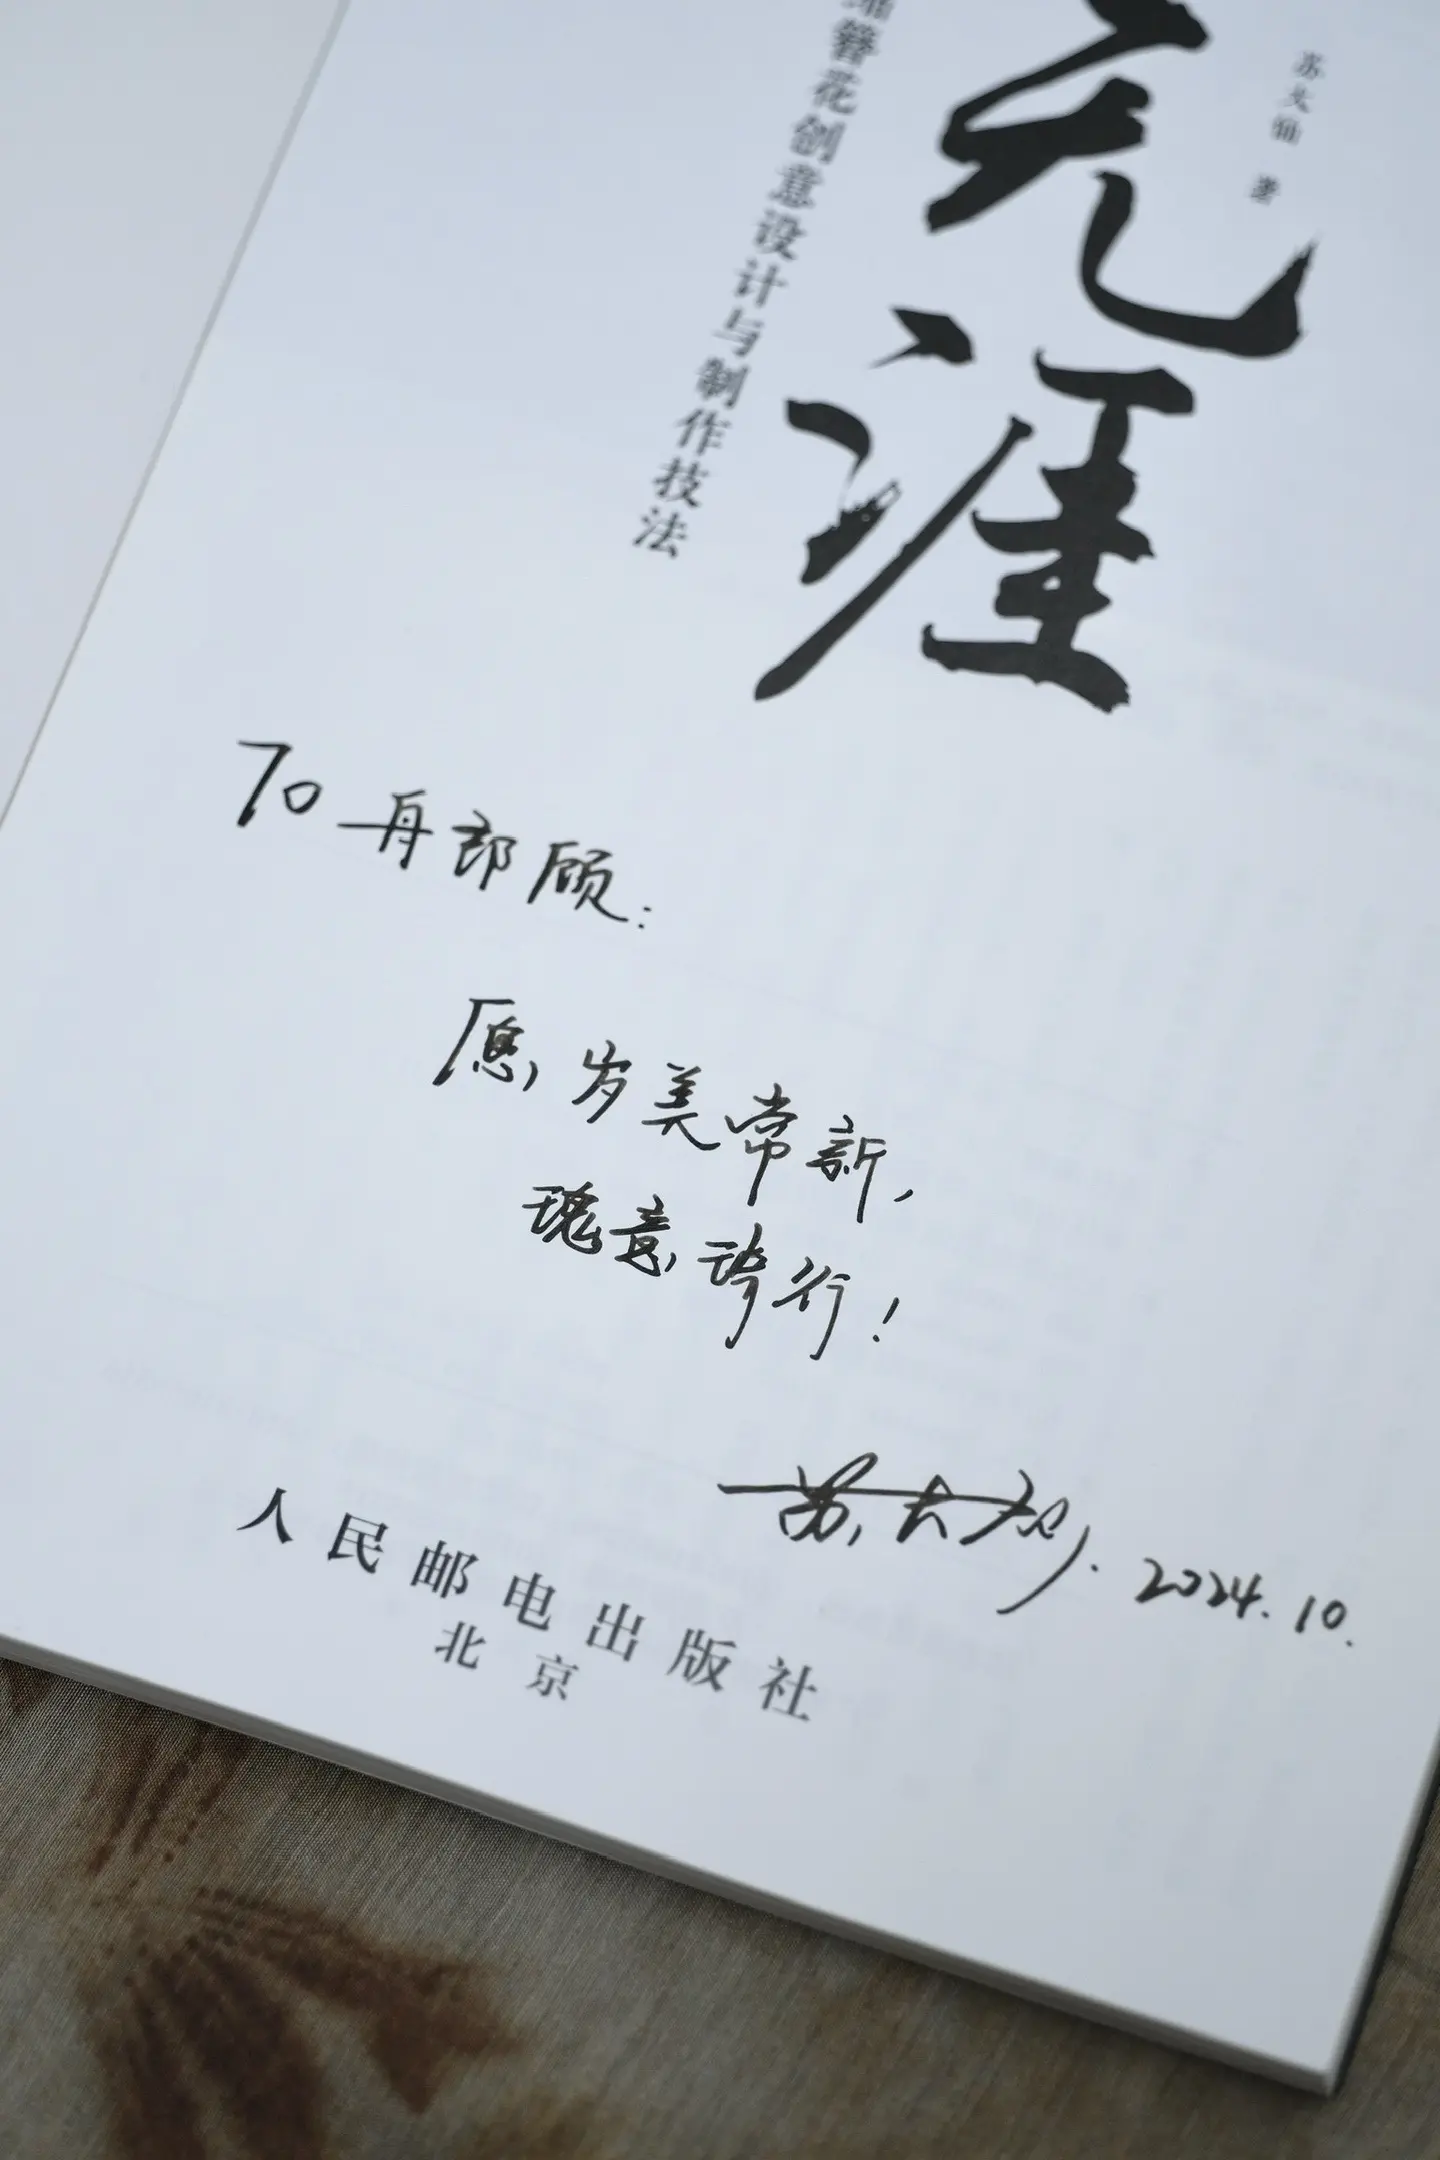 苏大仙 著
无涯
簪花创意设计与制作技法
To 舟郎顾：
愿岁美常新，
瑰意琦行！
苏大仙. 2024.10.
人民邮电出版社
北京